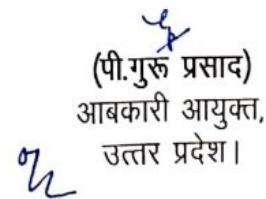 (पी.गुरू प्रसाद)
आबकारी आयुक्त,
उत्तर प्रदेश।